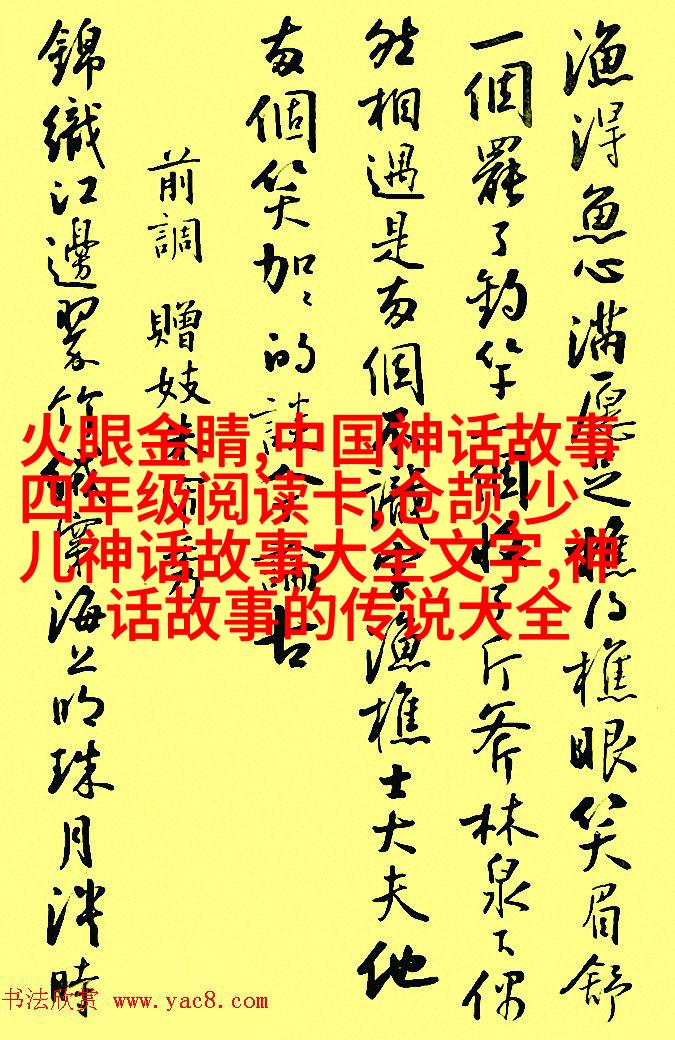 漁得魚心滿愿足樵得樵眼笑眉舒
一個罷了釣竿一個收了斤斧林泉下偶
然相遇是兩個不識字漁樵士大夫他
兩個笑加加的談今論古
前調 贈妓朱帘秀
錦織江邊翠竹絨穿海上明珠月淡時
火眼金睛,中国神话故事
四年级阅读卡,仓颉,少
儿神话故事大全文字,神
话故事的传说大全
书法欣赏 www.yac8.com